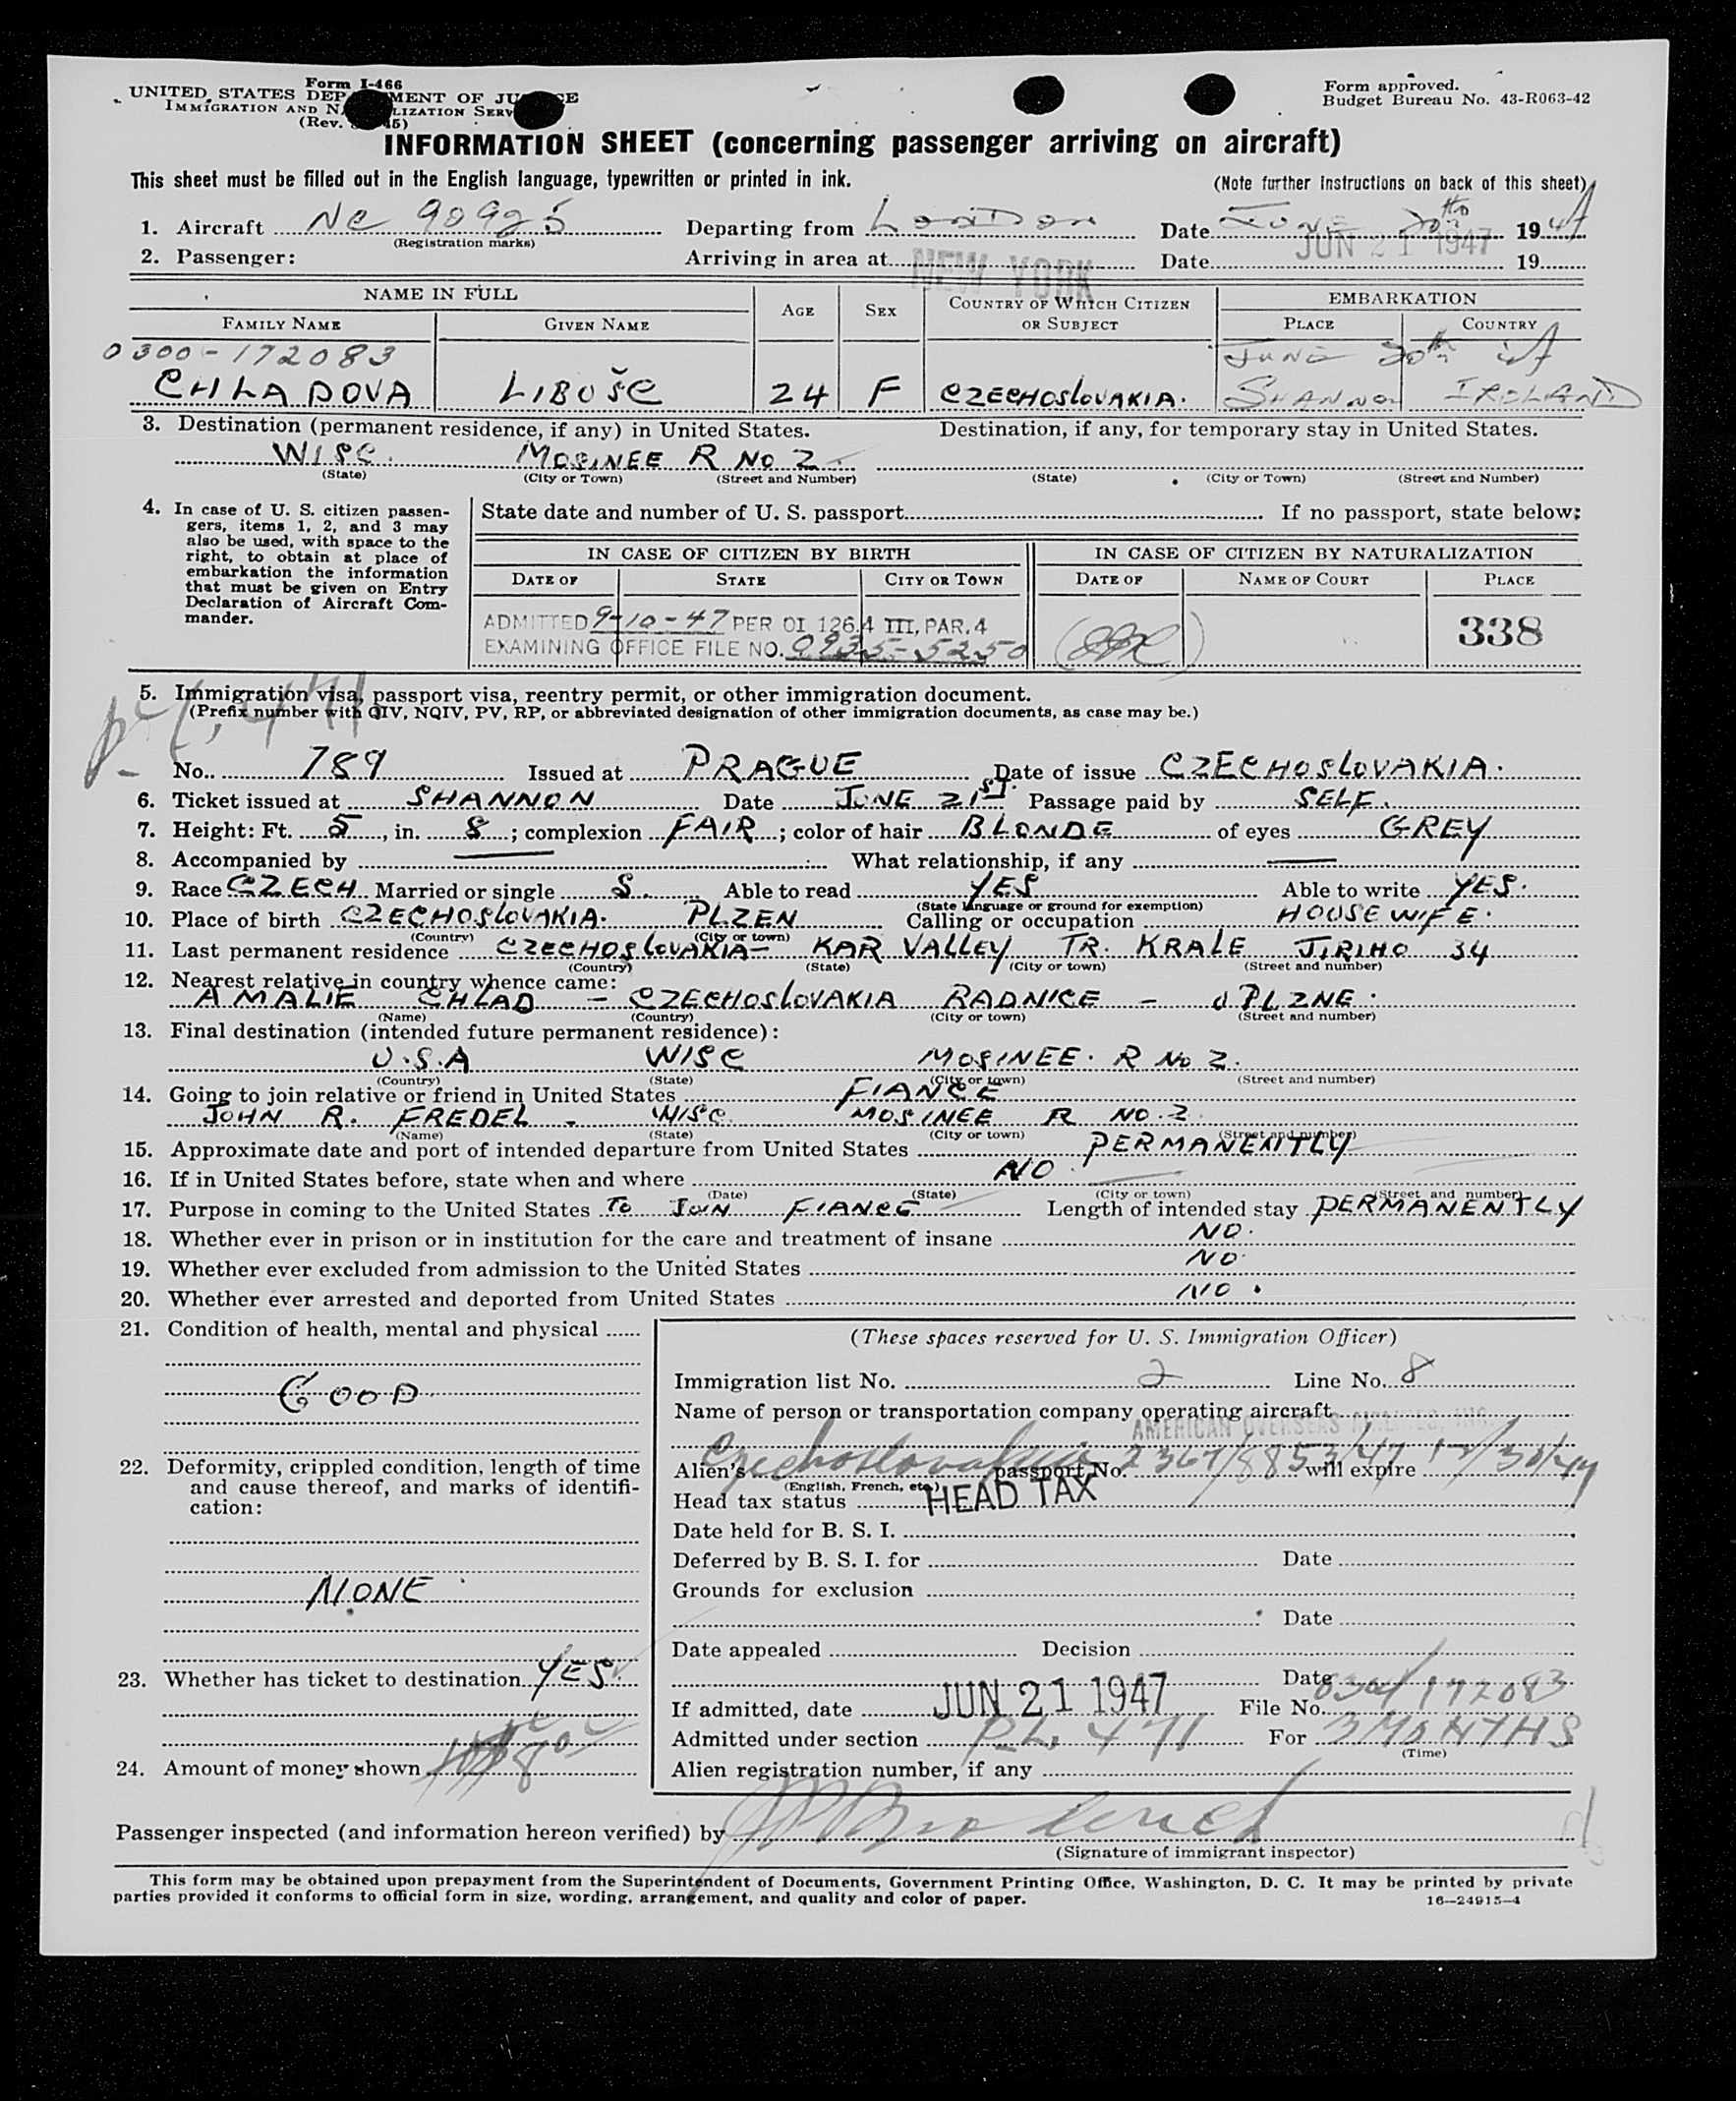 Form I-466
UNITED STATES DEP MENT OF JU CE
IMMIGRATION AND N LIZATION SERV
(Rev. 45)
Form approved.
Budget Bureau No. 43-R063-42
INFORMATION SHEET (concerning passenger arriving on aircraft)
This sheet must be filled out in the English language, typewritten or printed in ink. (Note further instructions on back of this sheet)
1. Aircraft NC 90925 Departing from LONDON Date JUNE 20th 1947
(Registration marks)
2. Passenger: Arriving in area at NEW YORK Date JUN 21 1947 19
NAME IN FULL AGE SEX COUNTRY OF WHICH CITIZEN OR SUBJECT EMBARKATION
FAMILY NAME GIVEN NAME PLACE COUNTRY
0300-172083 JUNE 20th 47
CHLADOVA LIBUŠE 24 F CZECHOSLOVAKIA. SHANNON IRELAND
3. Destination (permanent residence, if any) in United States. Destination, if any, for temporary stay in United States.
WISC. MOSINEE R No 2
(State) (City or Town) (Street and Number) (State) (City or Town) (Street and Number)
4. In case of U. S. citizen passengers, items 1, 2, and 3 may also be used, with space to the right, to obtain at place of embarkation the information that must be given on Entry Declaration of Aircraft Commander.
State date and number of U. S. passport If no passport, state below:
IN CASE OF CITIZEN BY BIRTH IN CASE OF CITIZEN BY NATURALIZATION
DATE OF STATE CITY OR TOWN DATE OF NAME OF COURT PLACE
ADMITTED 9-10-47 PER OI 126.4 III, PAR. 4
EXAMINING OFFICE FILE NO. 0935-5250
338
5. Immigration visa, passport visa, reentry permit, or other immigration document.
(Prefix number with QIV, NQIV, PV, RP, or abbreviated designation of other immigration documents, as case may be.)
No. 789 Issued at PRAGUE Date of issue CZECHOSLOVAKIA.
6. Ticket issued at SHANNON Date JUNE 21st Passage paid by SELF.
7. Height: Ft. 5, in. 8; complexion FAIR; color of hair BLONDE of eyes GREY
8. Accompanied by — What relationship, if any —
9. Race CZECH Married or single S. Able to read YES Able to write YES.
(State language or ground for exemption)
10. Place of birth CZECHOSLOVAKIA. PLZEN Calling or occupation HOUSEWIFE.
(Country) (City or town)
11. Last permanent residence CZECHOSLOVAKIA- KAR VALLEY TR. KRALE JIRIHO 34
(Country) (State) (City or town) (Street and number)
12. Nearest relative in country whence came:
AMALIE CHLAD - CZECHOSLOVAKIA RADNICE - PLZNE.
(Name) (Country) (City or town) (Street and number)
13. Final destination (intended future permanent residence):
U.S.A WISC MOSINEE. R No 2.
(Country) (State) (City or town) (Street and number)
14. Going to join relative or friend in United States FIANCE
JOHN R. FREDEL - WISC. MOSINEE R NO. 2.
(Name) (State) (City or town) (Street and number)
15. Approximate date and port of intended departure from United States PERMANENTLY
16. If in United States before, state when and where NO.
(Date) (State) (City or town) (Street and number)
17. Purpose in coming to the United States To JOIN FIANCE Length of intended stay PERMANENTLY
18. Whether ever in prison or in institution for the care and treatment of insane NO.
19. Whether ever excluded from admission to the United States NO.
20. Whether ever arrested and deported from United States NO.
21. Condition of health, mental and physical
GOOD
22. Deformity, crippled condition, length of time and cause thereof, and marks of identification:
NONE
23. Whether has ticket to destination YES.
24. Amount of money shown
(These spaces reserved for U. S. Immigration Officer)
Immigration list No. 2 Line No. 8
Name of person or transportation company operating aircraft
AMERICAN OVERSEAS AIRLINES, INC.
Alien's Czechoslovakia passport No. 2367/8853/47 will expire 12/30/47
(English, French, etc.)
Head tax status HEAD TAX
Date held for B. S. I.
Deferred by B. S. I. for Date
Grounds for exclusion
Date
Date appealed Decision
Date
If admitted, date JUN 21 1947 File No. 0300/172083
Admitted under section P.L. 471 For 3 MONTHS
(Time)
Alien registration number, if any
Passenger inspected (and information hereon verified) by
(Signature of immigrant inspector)
This form may be obtained upon prepayment from the Superintendent of Documents, Government Printing Office, Washington, D. C. It may be printed by private
parties provided it conforms to official form in size, wording, arrangement, and quality and color of paper. 16—24915-4